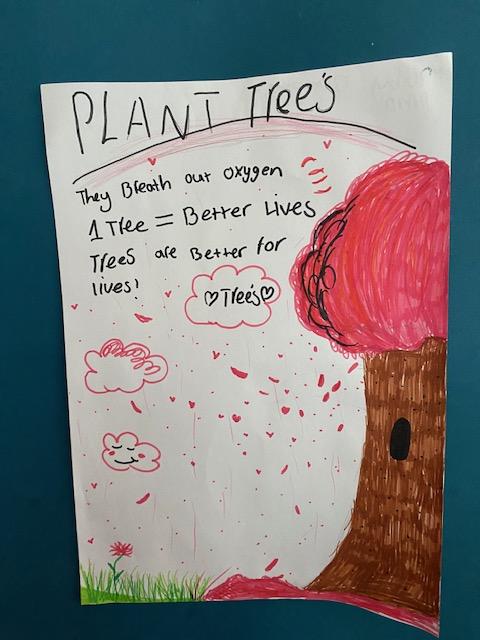 PLANT Tree's
They Breath out oxygen
1 Tree = Better Lives
Trees are Better for
lives!
♡Tree's♡